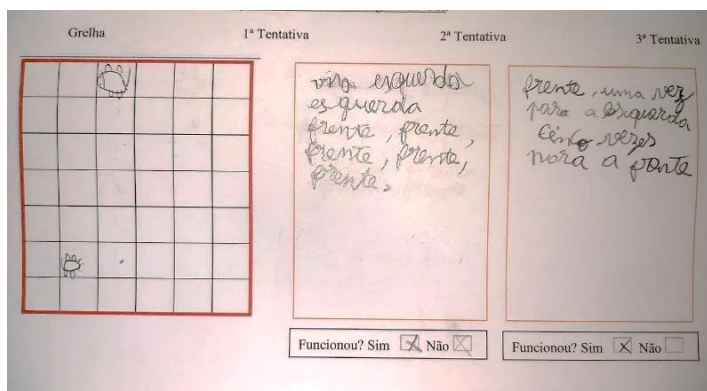 Grelha
1ª Tentativa
2ª Tentativa
3ª Tentativa
vira esquerda
esquerda
frente, frente,
frente, frente,
frente,
frente, uma vez
para a esquerda
cinco vezes
para a frente
Funcionou? Sim Não
Funcionou? Sim Não